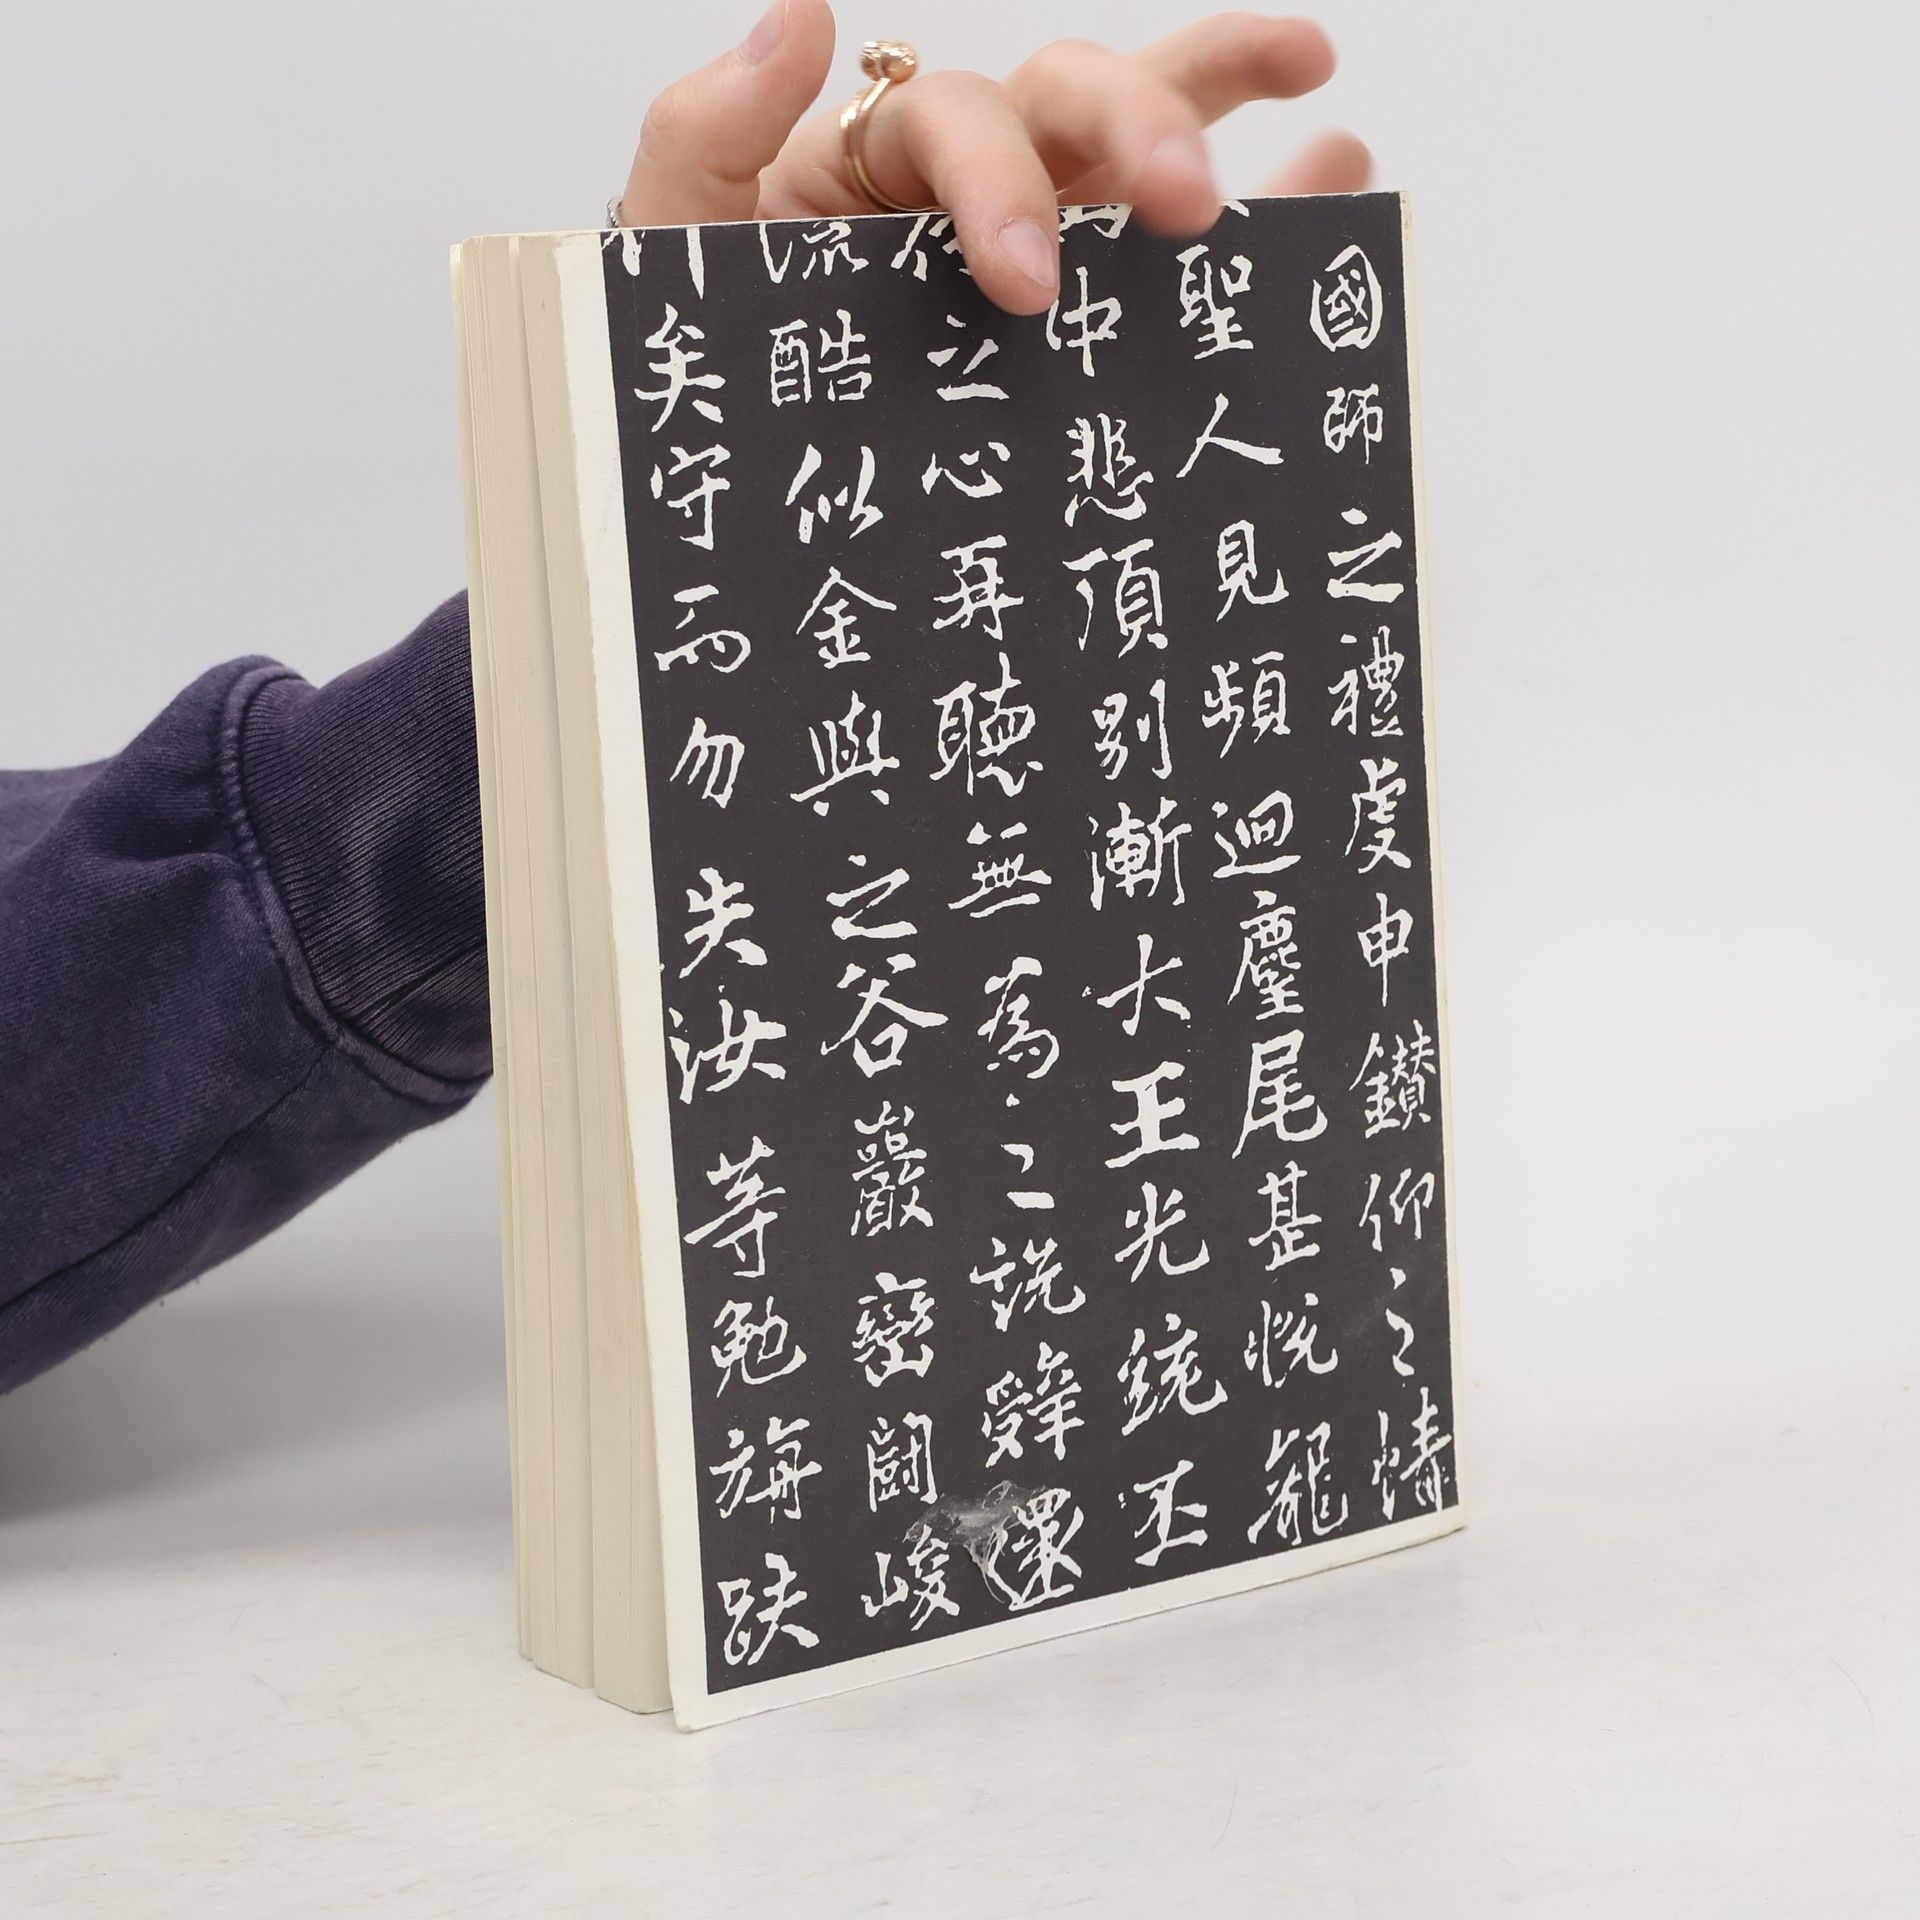 國師之禮虔申鑽仰之情
聖人見頻迴麈尾甚恱龍
中悲頂別漸大王光統丕
之心再聽無為之說辤還
流酷似金與之谷巖巒鬪峻
矣守而勿失汝等勉旃趺